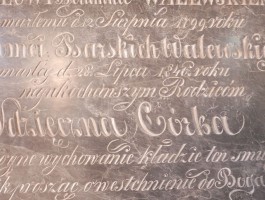 WALEWSKI
zmarłemu d. 12 Sierpnia 1799. roku
Barskich Walewski
zmarłą d. 28. Lipca 1846. roku
naykochańszym Rodzicom
Wdzięczna Corka
wychowanie kładzie ten
prosząc o westchnienie do Boga